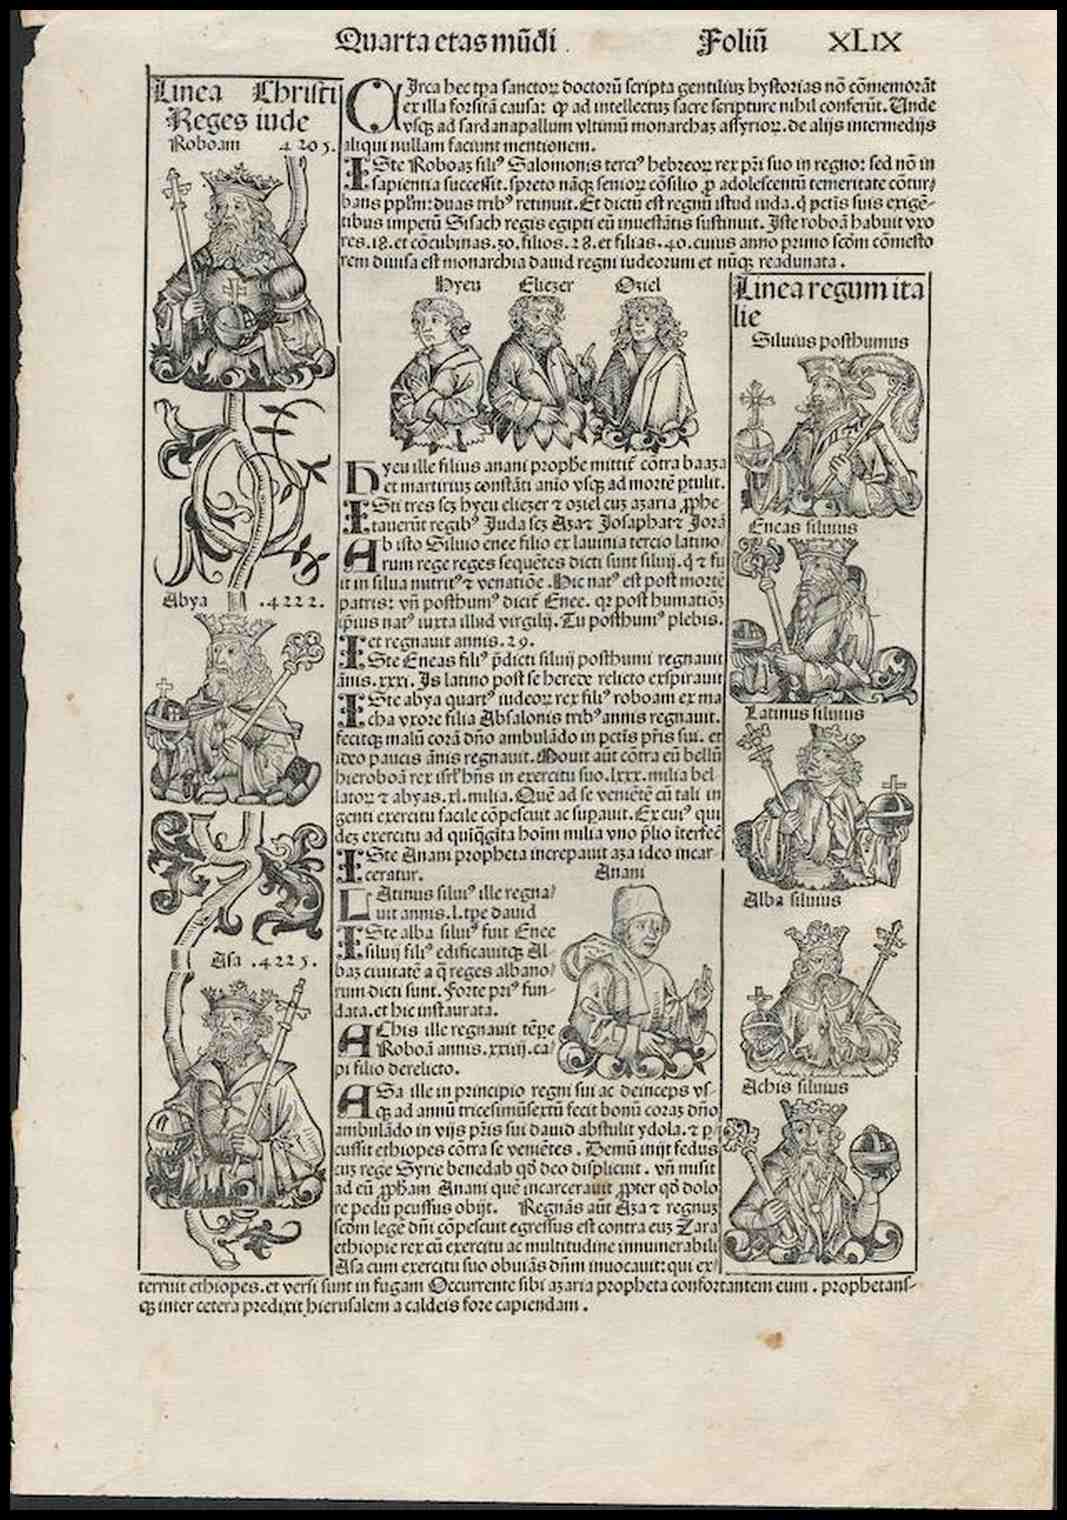 Quarta etas mũdi Foliũ XLIX
Linea Christi
Reges iude
Roboam 4205.
CIrca hec tꝑa sanctoꝝ doctorũ scripta gentiliuʒ hystorias nõ cõmemorãt
ex illa forsitã causa: ꝙ ad intellectuʒ sacre scripture nihil conferũt. Unde
vsqʒ ad sardanapallum vltimũ monarchaʒ assyrioꝝ. de alijs intermedijs
aliqui nullam faciunt mentionem.
ISte Roboaʒ filiꝰ Salomonis terciꝰ hebreoꝝ rex pr̃i suo in regno: sed nõ in
sapientia successit. spreto nãqʒ senioꝝ cõsilio ꝓ adolescentũ temeritate cõtur⸗
bans pplm̃: duas tribꝰ retinuit. Et dictũ est regnũ istud iuda. q̇ pctĩs suis exigẽ⸗
tibus impetũ Sisach regis egipti eũ inuestãtis sustinuit. Iste roboã habuit vxo
res. 18. et cõcubinas. 30. filios. 28. et filias. 40. cuius anno primo scd̃m cõmesto
rem diuisa est monarchia dauid regni iudeorum et nũqʒ readunata.
Hyeu Eliezer Oziel
Linea regum ita
lie
Siluius posthumus
hyeu ille filius anani prophẽ mittit̃ cõtra baaʒa
et martirium constãti anio vsqʒ ad mortẽ ꝑtulit.
ISti tres scʒ hyeu eliezer ⁊ oziel cuʒ azaria ꝓphe⸗
tauerũt regibꝰ Juda scʒ Aza⁊ Josaphat⁊ Jorã
Eneas siluius
AB isto Siluio enee filio ex lauinia tercio latino⸗
rum rege reges sequẽtes dicti sunt siluij. q̇ ⁊ fu
it in silua nutritꝰ ⁊ venatiõe. Hic natꝰ est post mortẽ
patris: vñ posthumꝰ dicit̃ Enee. qꝛ post humatiõʒ
ip̃ius natꝰ iuxta illud virgilij. Tu posthumꝰ plebis.
et regnauit annis. 29.
Abya .4222.
ISte Eneas filiꝰ p̃dicti siluij posthumi regnauit
ãnis. xxxi. Is latino post se herede relicto expirauit
Latinus siluius
ISte abya quartꝰ iudeoꝝ rex filiꝰ roboam ex ma
cha vxore filia Absalonis tribꝰ annis regnauit.
fecitqʒ malũ corã dño ambulãdo in pctĩs pr̃is sui. et
ideo paucis ãnis regnauit. Mouit aũt cõtra eũ bellũ
hieroboã rex isrl̃ hñs in exercitu suo. lxxx. milia bel
latoꝝ ⁊ abyas. xl. milia. Quẽ ad se veniẽtẽ cũ tali in
genti exercitu facile cõpescuit ac suꝑauit. Ex cuiꝰ qui
deʒ exercitu ad quĩq̃gĩta hoĩm milia vno p̃lio iterfec̃
ISte Anani propheta increpauit aza ideo incar⸗
ceratur.
Anani
LAtinus siluiꝰ ille regna⸗
uit annis. l. tꝑe dauid
Alba siluius
ISte alba siluiꝰ fuit Enee
siluij filiꝰ edificauitqʒ Al⸗
baʒ ciuitatẽ a q̃ reges albano⸗
rum dicti sunt. Forte priꝰ fun⸗
data. et hic instaurata.
Asa .4225.
AChis ille regnauit tẽꝑe
Roboã annis. xxiiij. ca⸗
pi filio derelicto.
Achis siluius
ASa ille in principio regni sui ac deinceps vs⸗
qʒ ad annũ tricesimũsextũ fecit bonũ coraʒ dño
ambulãdo in vijs pr̃is sui dauid abstulit ydola. ⁊ ꝑ
cussit ethiopes cõtra se veniẽtes. Demũ inijt fedus
cuʒ rege Syrie benedab qd̃ deo displicuit. vñ misit
ad eũ ꝓph̃am Anani quẽ incarcerauit ꝓpter qd̃ dolo
re pedũ ꝑcussus obijt. Regnãs aũt Aza ⁊ regnuʒ
scd̃m legẽ dñi cõpescuit egressus est contra euʒ Zara
ethiopie rex cũ exercitu ac multitudine innumerabili
Asa cum exercitu suo obuiãs dñm inuocauit: qui ex⸗
terruit ethiopes. et versi sunt in fugam Occurrente sibi azaria propheta confortantem eum. prophetans⸗
qʒ inter cetera predixit hierusalem a caldeis fore capiendam.